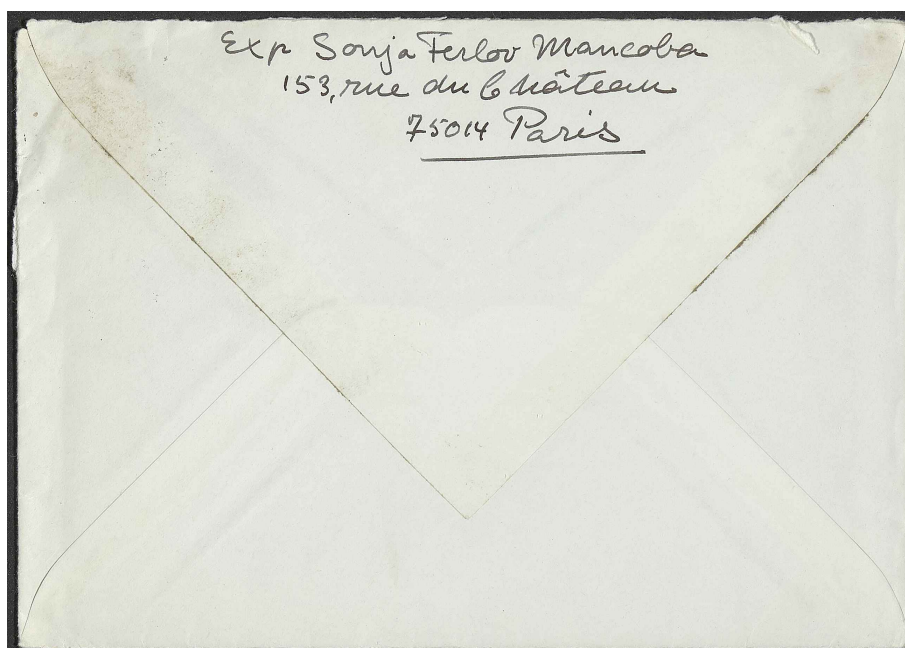 Exp Sonja Ferlov Mancoba
153, rue du Château
75014 Paris